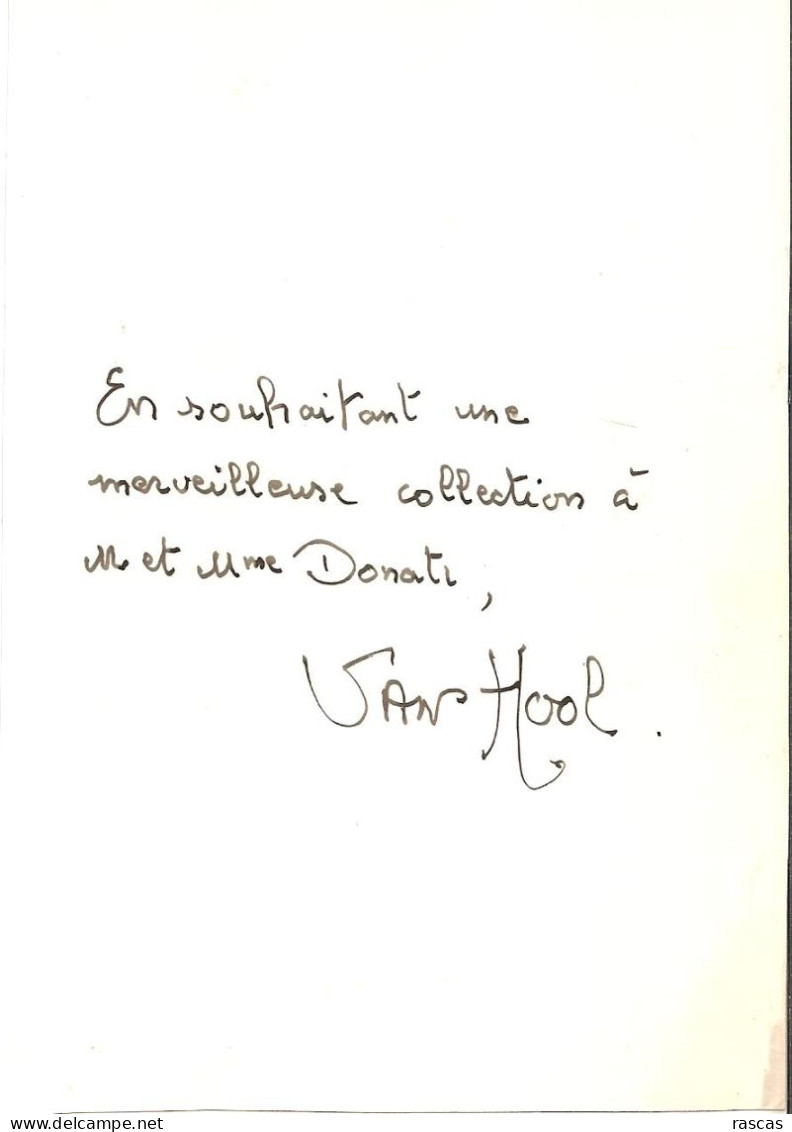 En souhaitant une
merveilleuse collection à
M et Mme Donati,
VAN HOOL.
rascas
delcampe.net